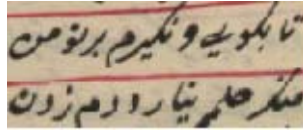 تا بگویی و نگیرم بر تو من
منکر حلمم نیارد دم زدن